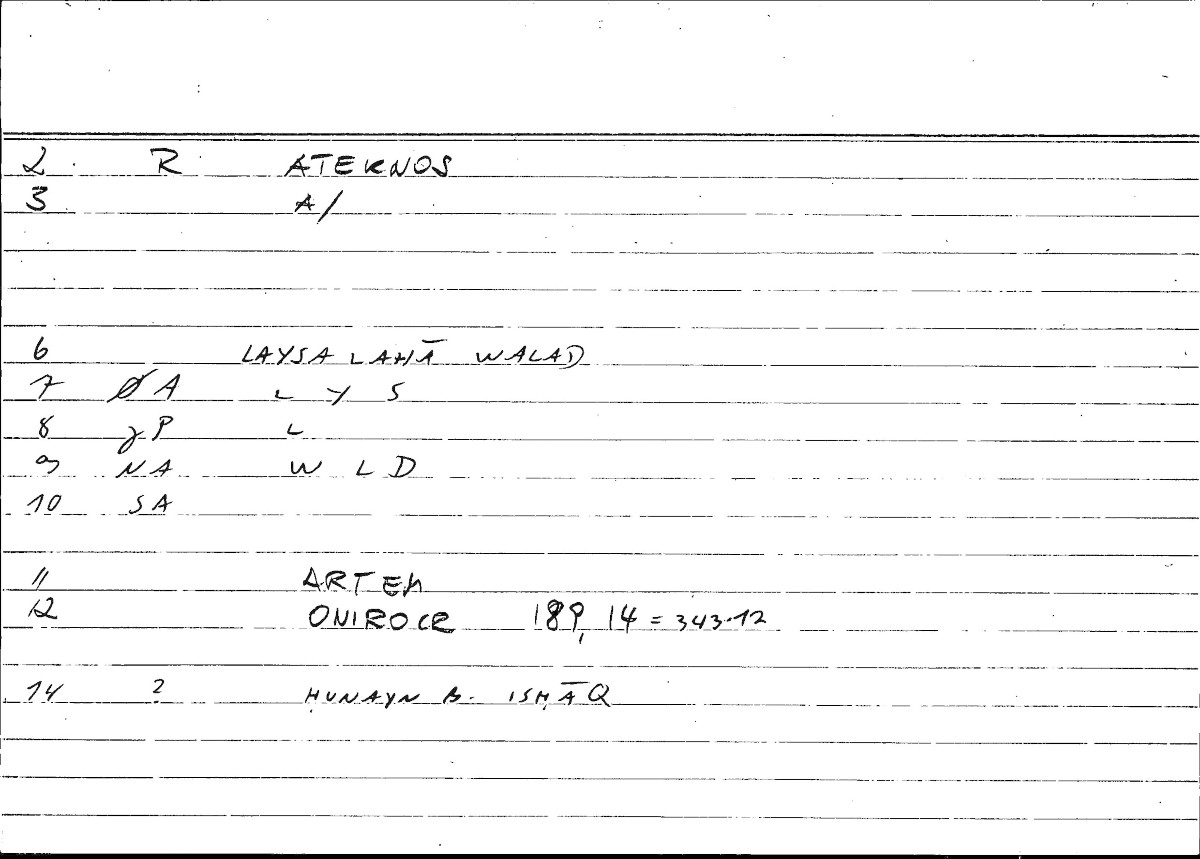 2 R ATEKNOS
3 A/
6 LAYSA LAHĀ WALAD
7 ØA L Y S
8 gP L
9 NA W L D
10 SA
11 ARTEM
12 ONIROCR 189, 14 = 343.12
14 ? ḤUNAYN B. ISḤĀQ